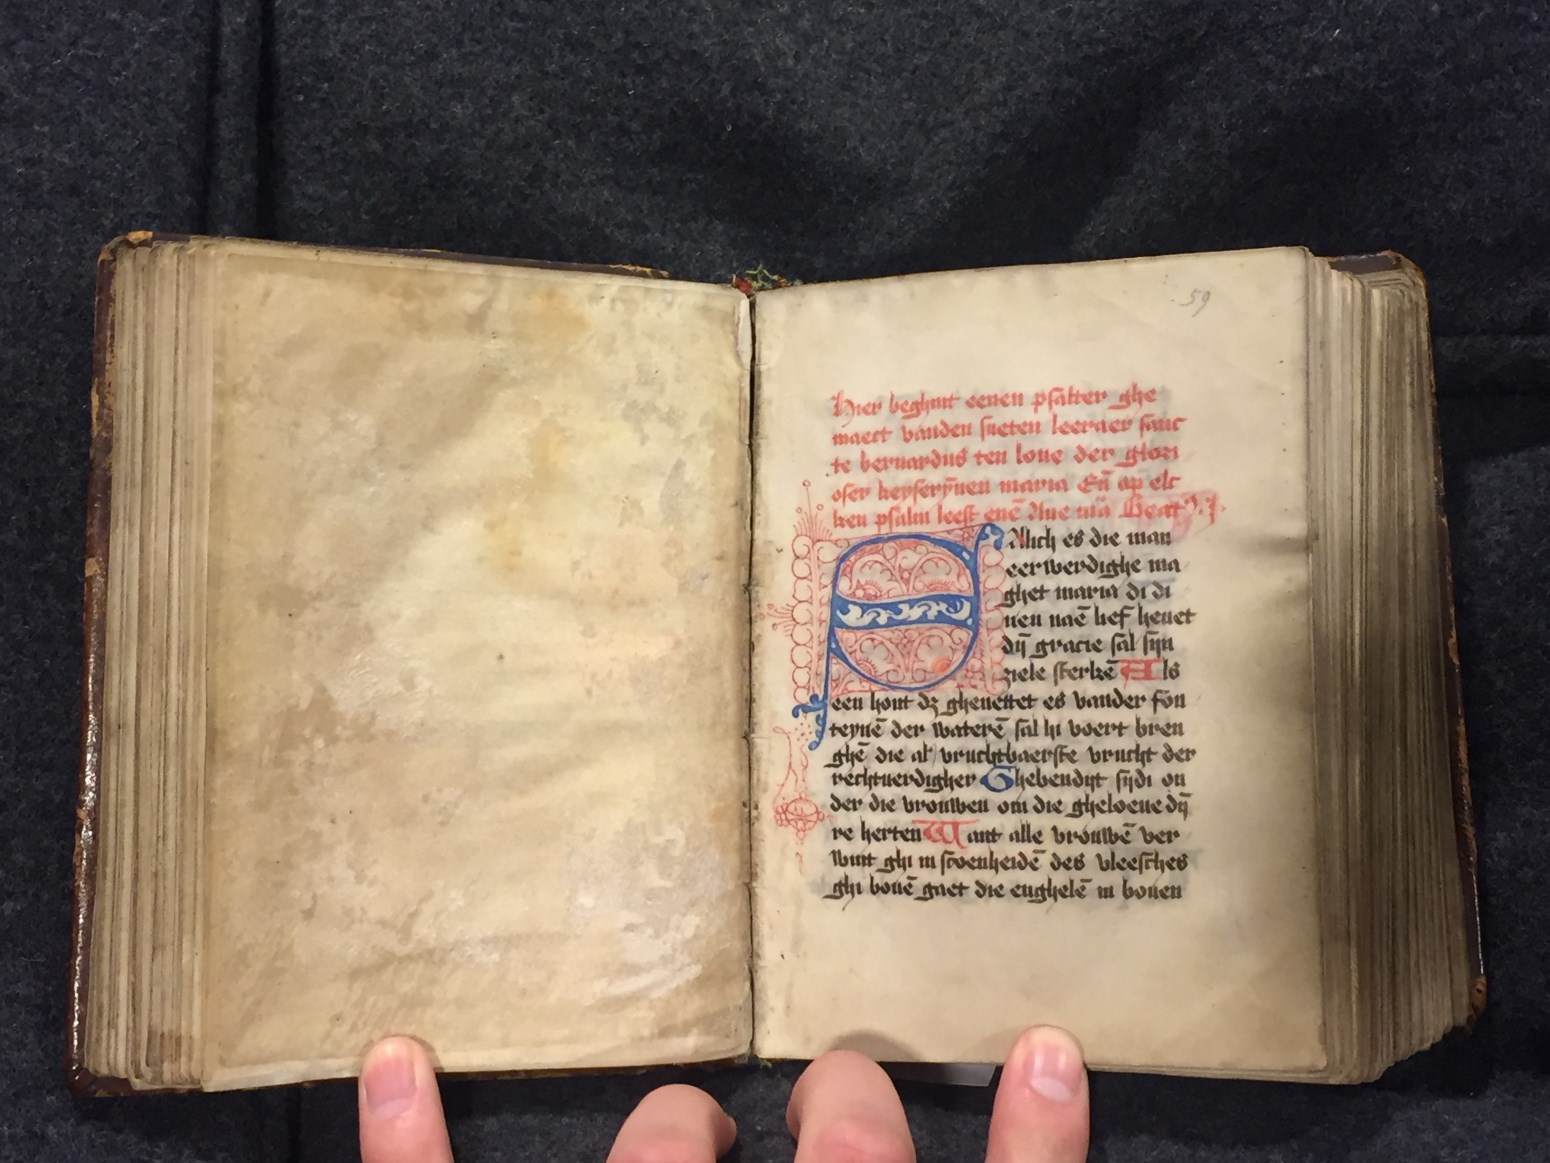 59
Hier beghint eenen psalter ghe
maect vanden sueten leeraer sanc
te bernardus ten loue der glori
oser keyserỹnen maria Eñ op elc
ken psalm leest enē Aue mā Beat9.
Salich es die man
eerwerdighe ma
ghet maria di di
nen naē lief heuet
dij gracie sal sijn
ziele sterkē Als
een hout dz ghenettet es vander fon
teynē der waterē sal hi voert bren
ghē die al vruchtbaerste vrucht der
rechtuerdigher Ghebendijt sijdi on
der die vrouwen om die gheloeue dij
re herten Want alle vrouwē ver
wint ghi in scoenheidē des vleesches
ghi bouē gaet die enghelē in bouen